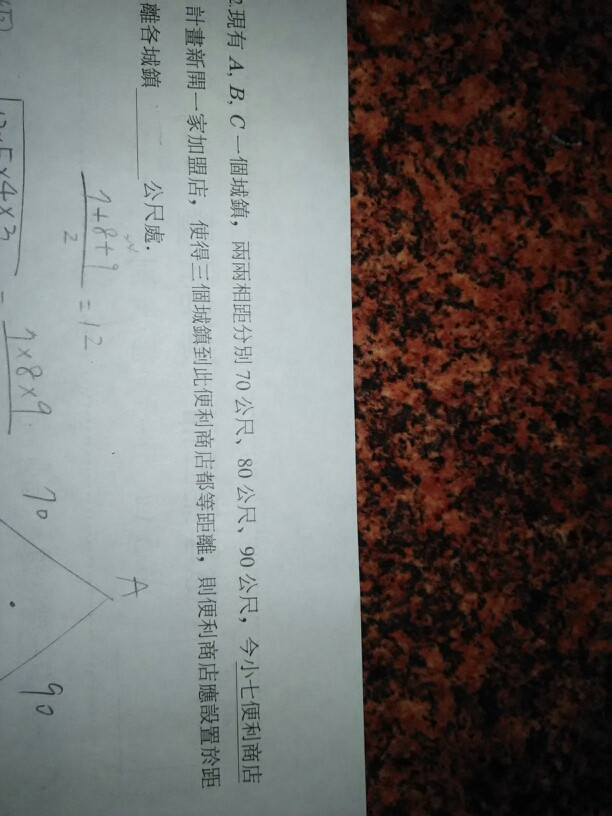 2.現有 A, B, C 一個城鎮，兩兩相距分別 70 公尺、80 公尺、90 公尺，今小七便利商店
計畫新開一家加盟店，使得三個城鎮到此便利商店都等距離，則便利商店應設置於距
離各城鎮______公尺處.
7+8+9
2
=12
12×5×4×3
=
7×8×9
A
70
90